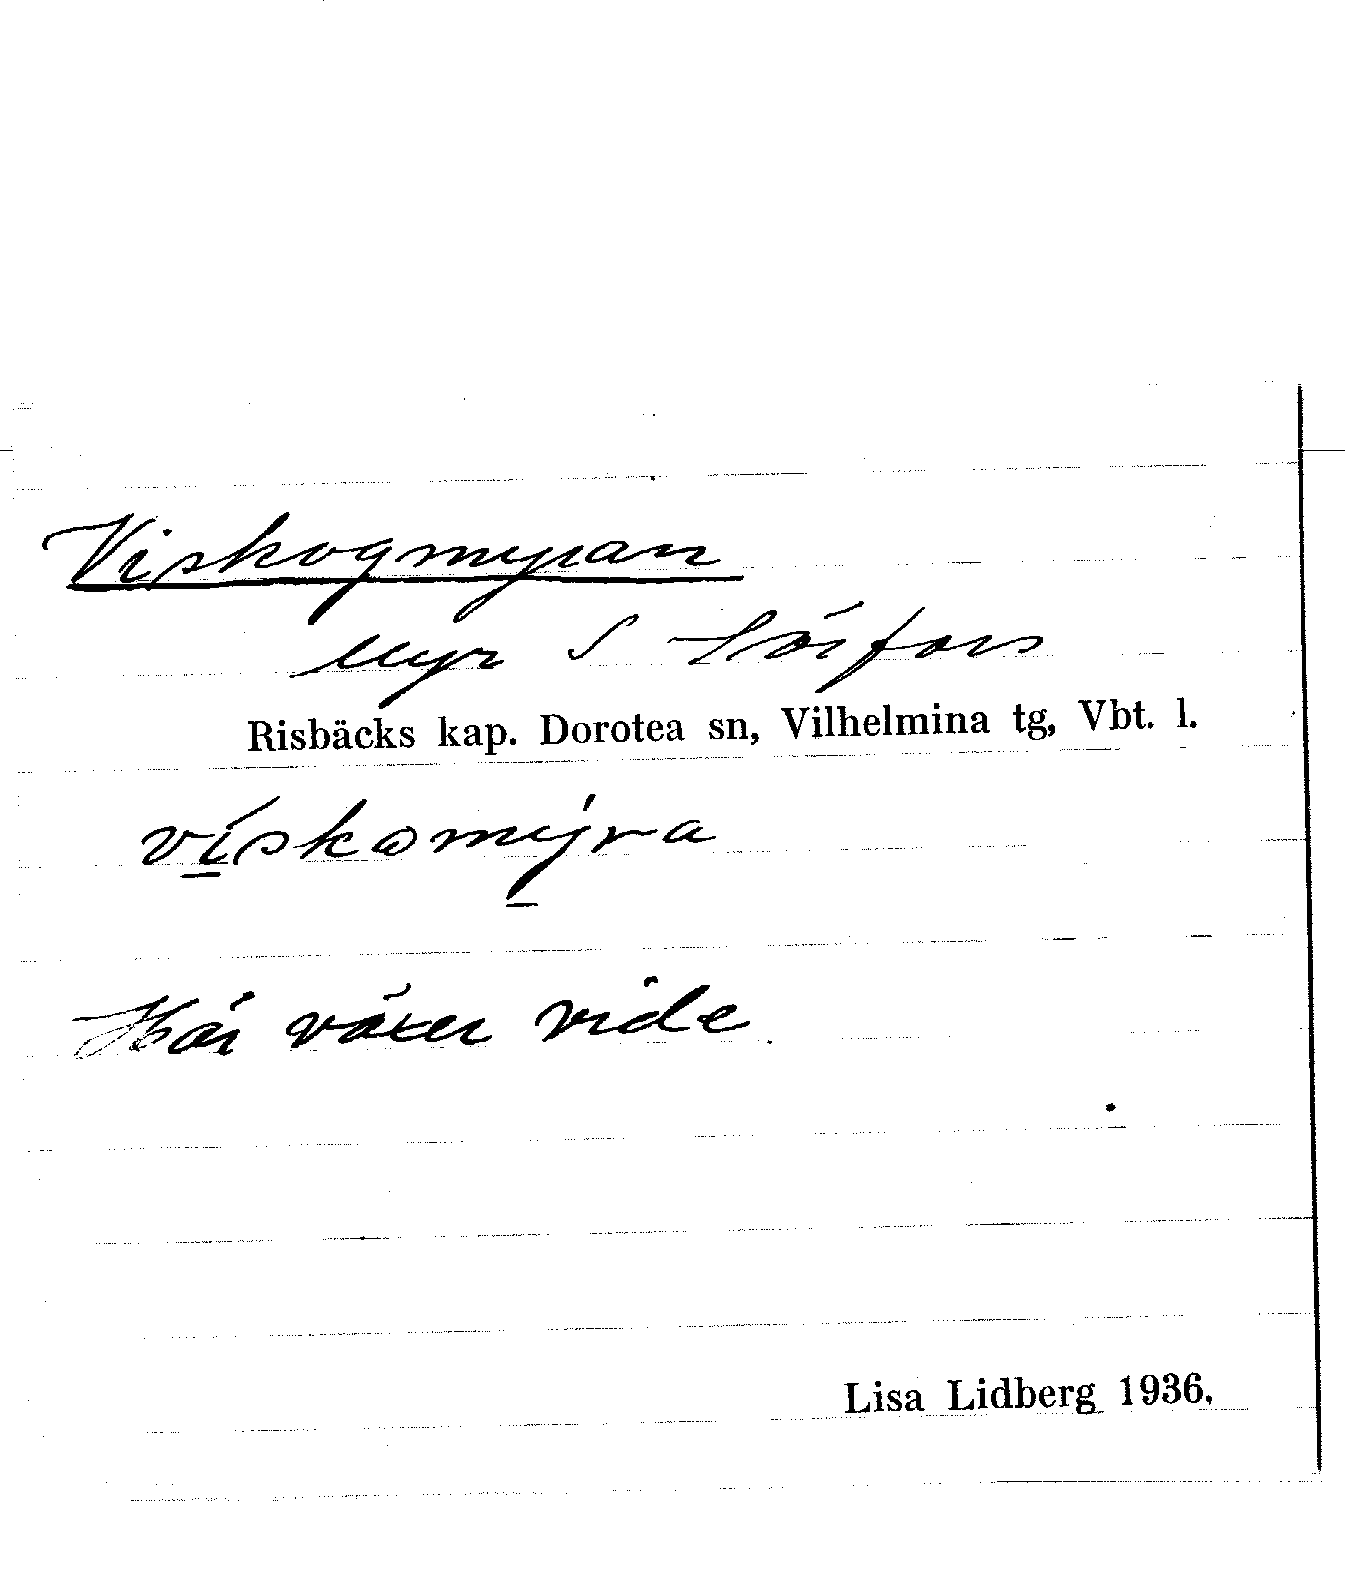 Viskogmyran
Myr S Lövfors
Risbäcks kap. Dorotea sn, Vilhelmina tg, Vbt. l.
viskomýra
Här växer vide.
Lisa Lidberg 1936.